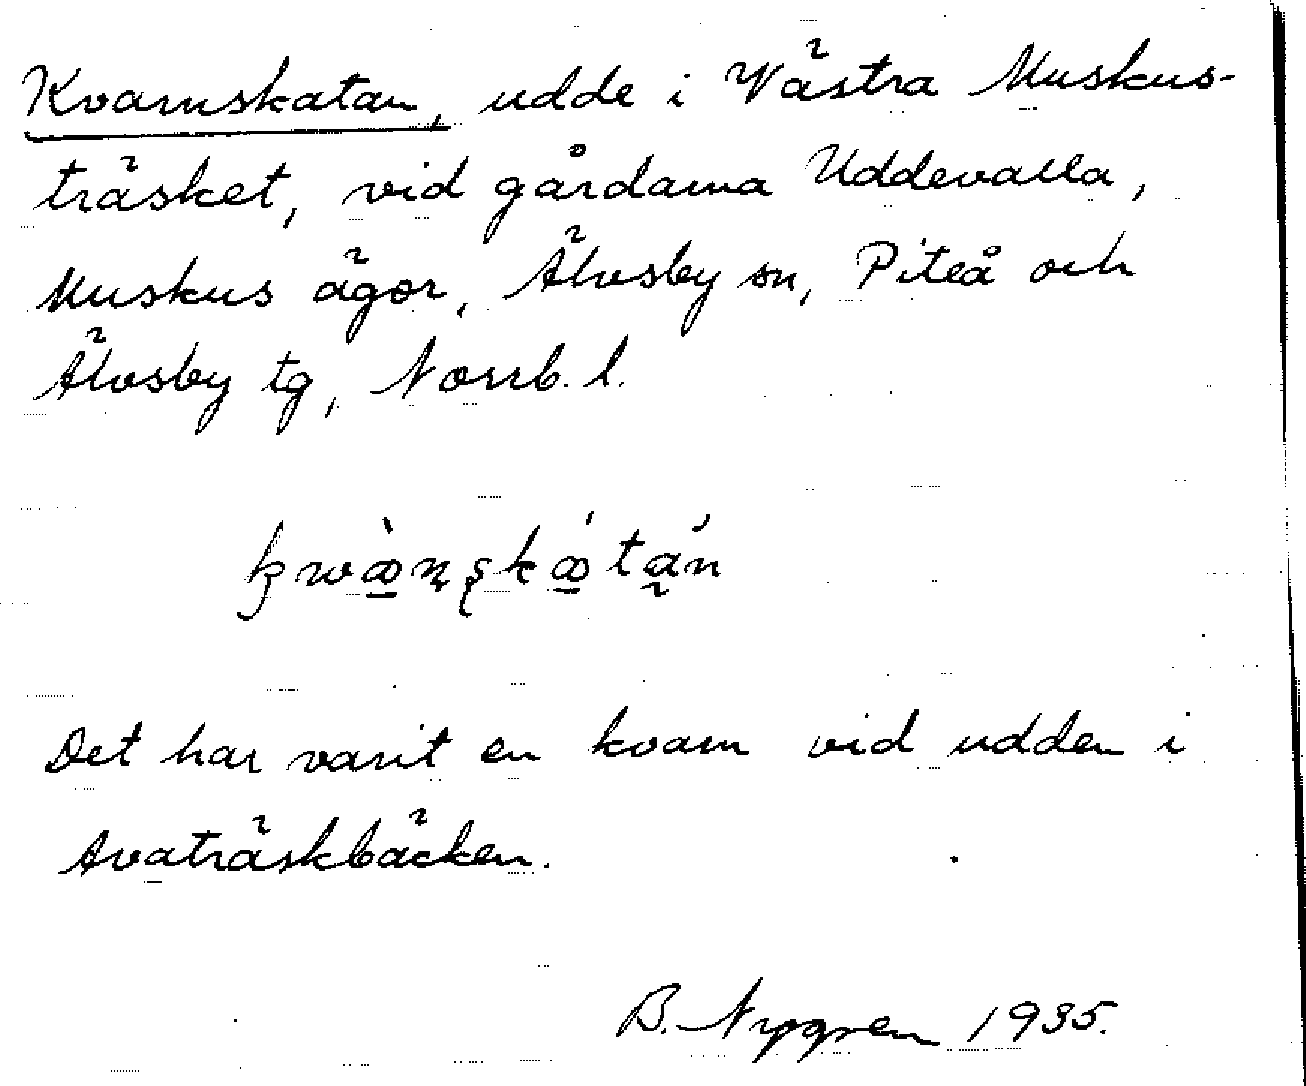 Kvarnskatan, udde i Västra Muskus-
träsket, vid gårdarna Uddevalla,
Muskus ägor, Älvsby sn, Piteå och
Älvsby tg, Norrb. l.
Det har varit en kvarn vid udden i
Avaträskbäcken.
B. Nygren 1935.